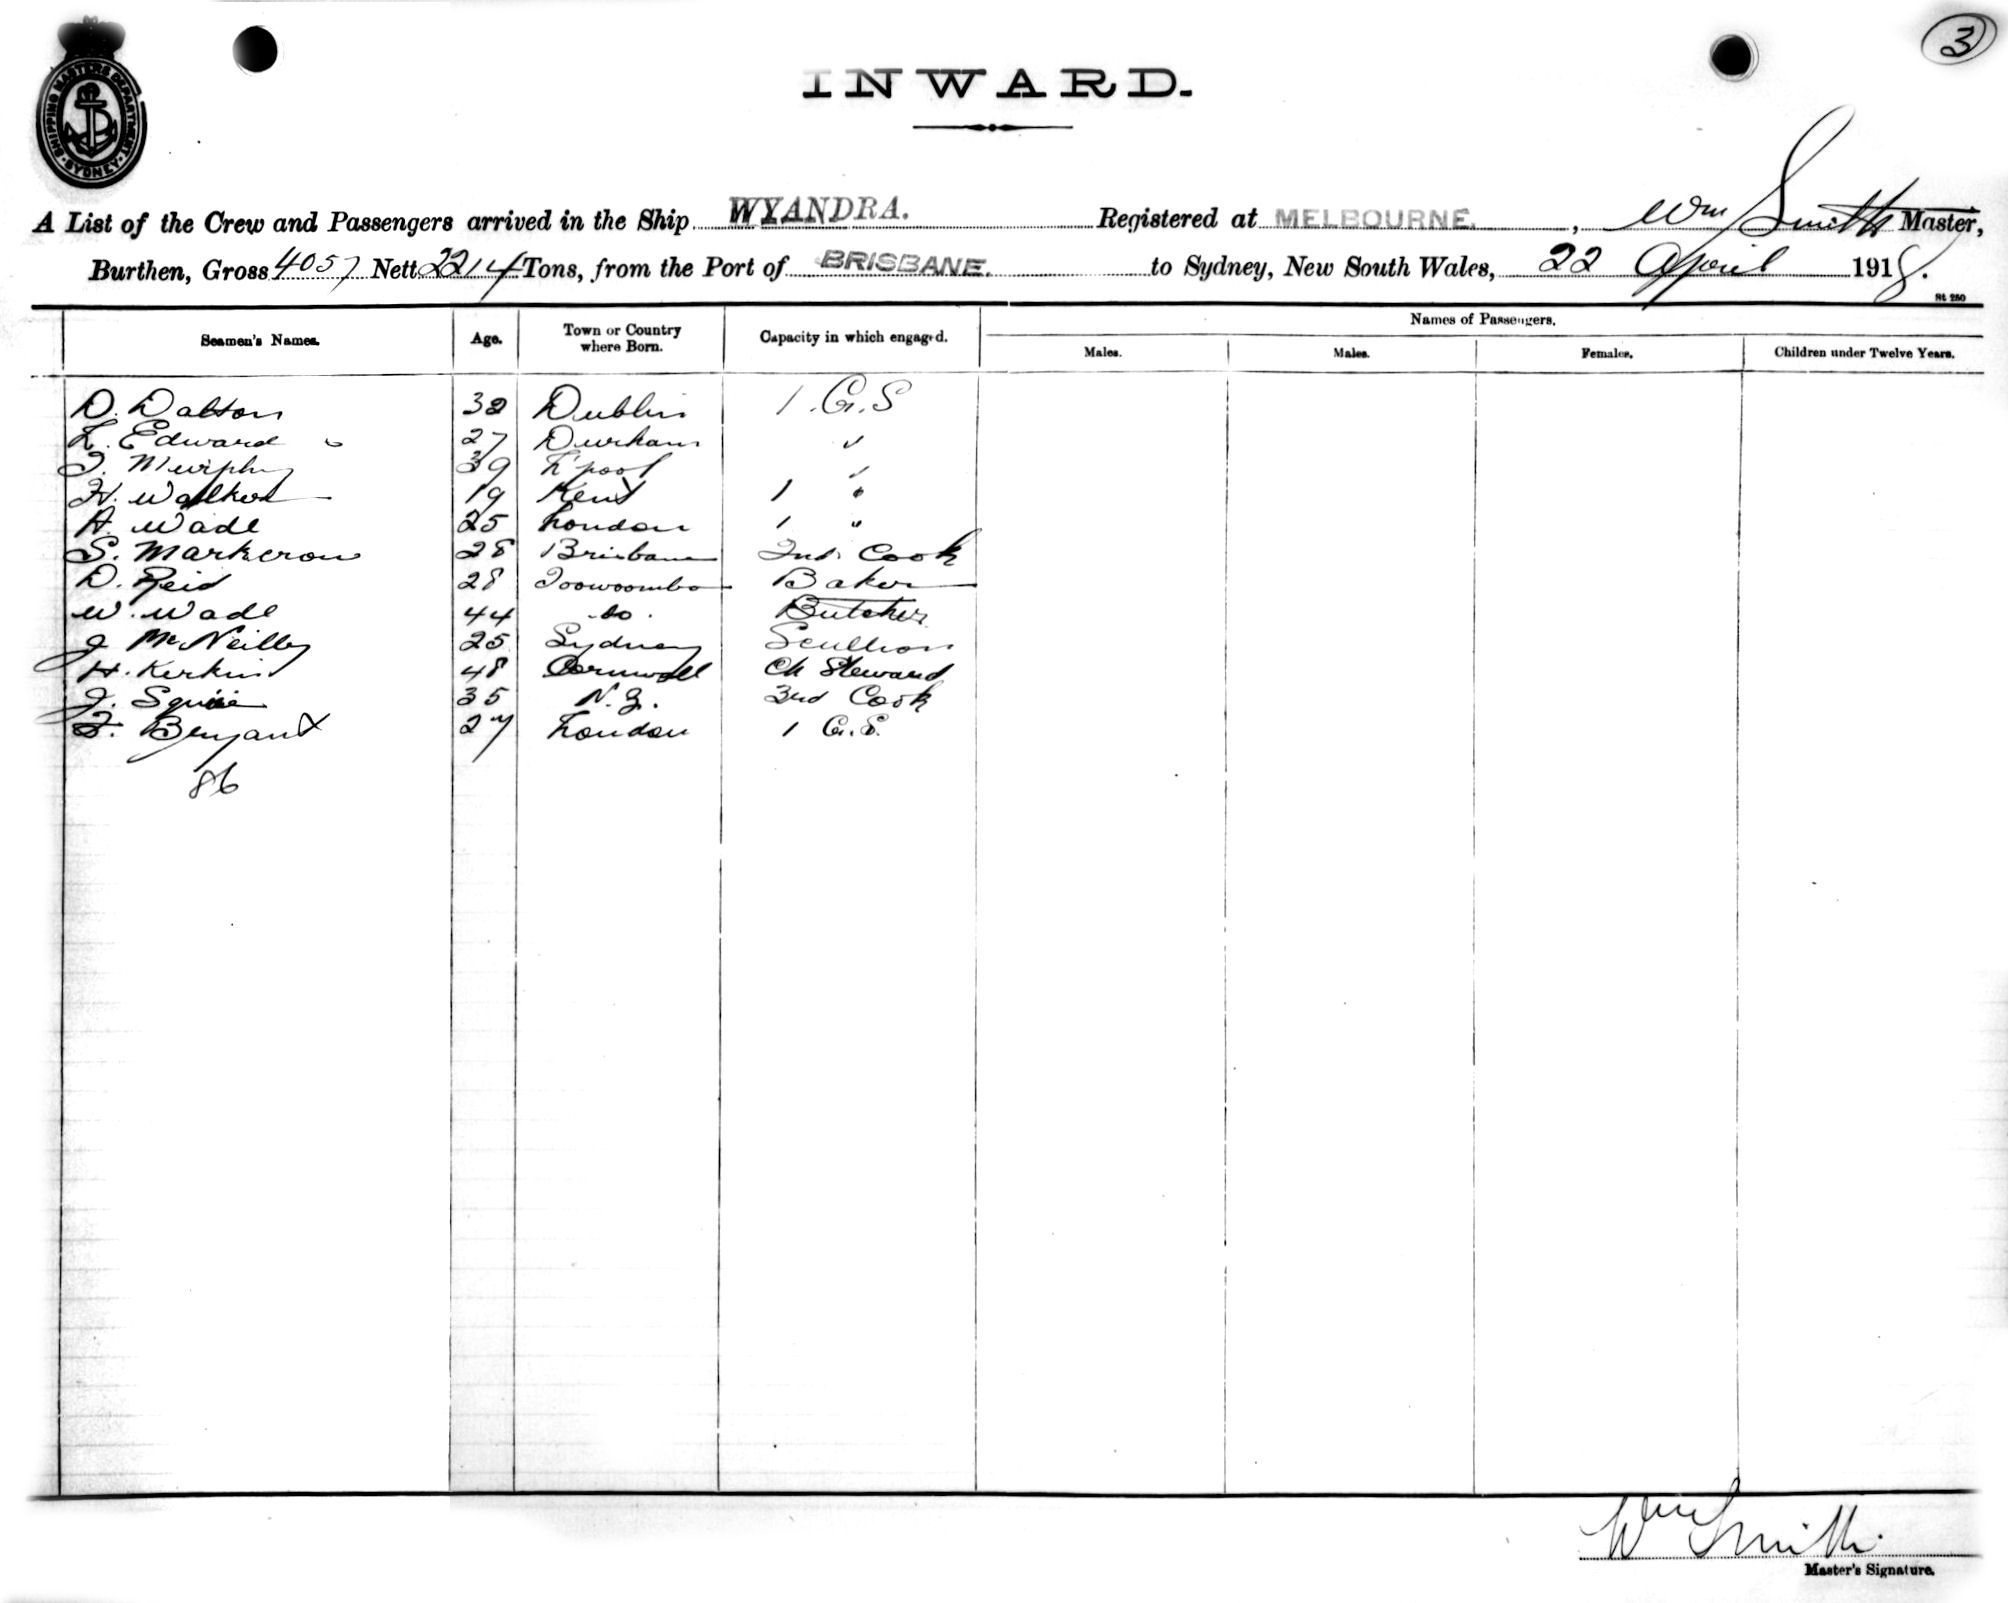 3
SHIPPING MASTERS DEPARTMENT · SYDNEY ·
INWARD.
A List of the Crew and Passengers arrived in the Ship WYANDRA. Registered at MELBOURNE, Wm Smith Master,
Burthen, Gross 4057 Nett 2214 Tons, from the Port of BRISBANE. to Sydney, New South Wales, 22 April 1918.
St 250
Seamen's Names. Age. Town or Country where Born. Capacity in which engaged. Names of Passengers.
Males. Males. Females. Children under Twelve Years.
D. Dalton 32 Dublin 1. G. S
L. Edward 27 Durham "
J. Murphy 39 L'pool "
H. Walker 19 Kent 1 "
A. Wade 25 London 1 "
S. Markcrow 28 Brisbane 2nd Cook
D. Reid 28 Toowoomba Baker
W. Wade 44 do. Butcher
J McNeilly 25 Sydney Scullion
H. Kerkin 48 Cornwall Ch Steward
J. Squire 35 N.Z. 3rd Cook
F. Bryant 27 London 1 G.S.
86
Wm Smith
Master's Signature.